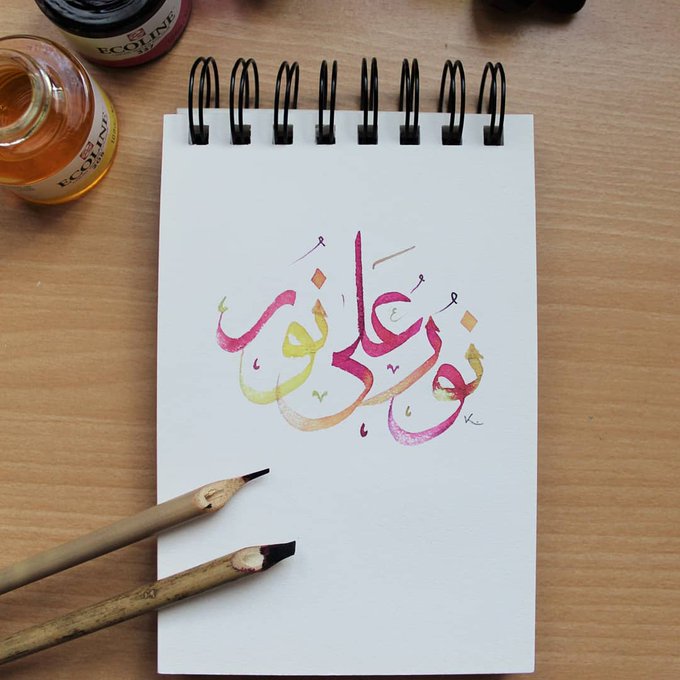 ECOLINE
ECOLINE
نُورٌ عَلَى نُورٍ